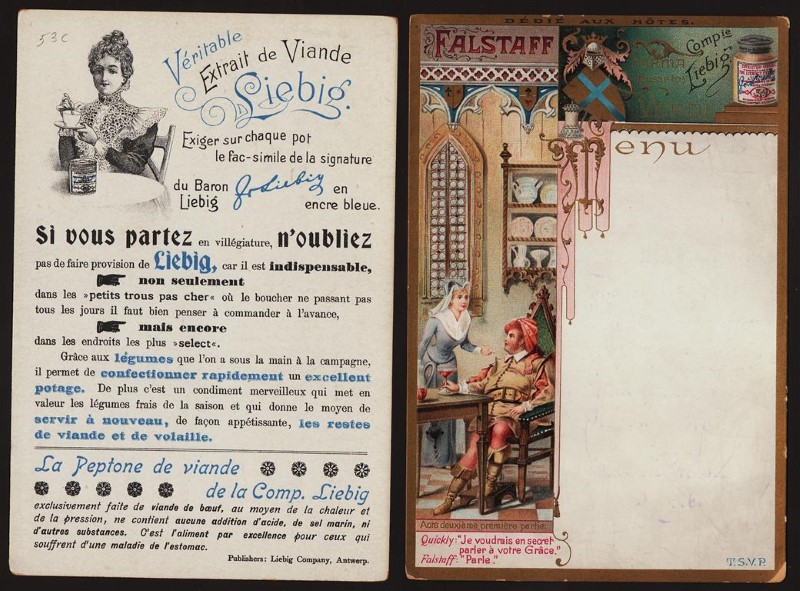 53C
Véritable
Extrait de Viande
Liebig.
Exiger sur chaque pot
le fac-simile de la signature
du Baron
Liebig
JvLiebig
en
encre bleue.
Si vous partez en villégiature, n'oubliez
pas de faire provision de Liebig, car il est indispensable,
non seulement
dans les »petits trous pas cher« où le boucher ne passant pas
tous les jours il faut bien penser à commander à l'avance,
mais encore
dans les endroits les plus »select«.
Grâce aux légumes que l'on a sous la main à la campagne,
il permet de confectionner rapidement un excellent
potage. De plus c'est un condiment merveilleux qui met en
valeur les légumes frais de la saison et qui donne le moyen de
servir à nouveau, de façon appétissante, les restes
de viande et de volaille.
La Peptone de viande
de la Comp. Liebig
exclusivement faite de viande de bœuf, au moyen de la chaleur et
de la pression, ne contient aucune addition d'acide, de sel marin, ni
d'autres substances. C'est l'aliment par excellence pour ceux qui
souffrent d'une maladie de l'estomac.
Publishers: Liebig Company, Antwerp.
DÉDIÉ AUX HÔTES.
FALSTAFF
Compie
Liebig
Menu
Acte deuxième, première partie.
Quickly: "Je voudrais en secret
parler à votre Grâce."
Falstaff: "Parle."
T.S.V.P.